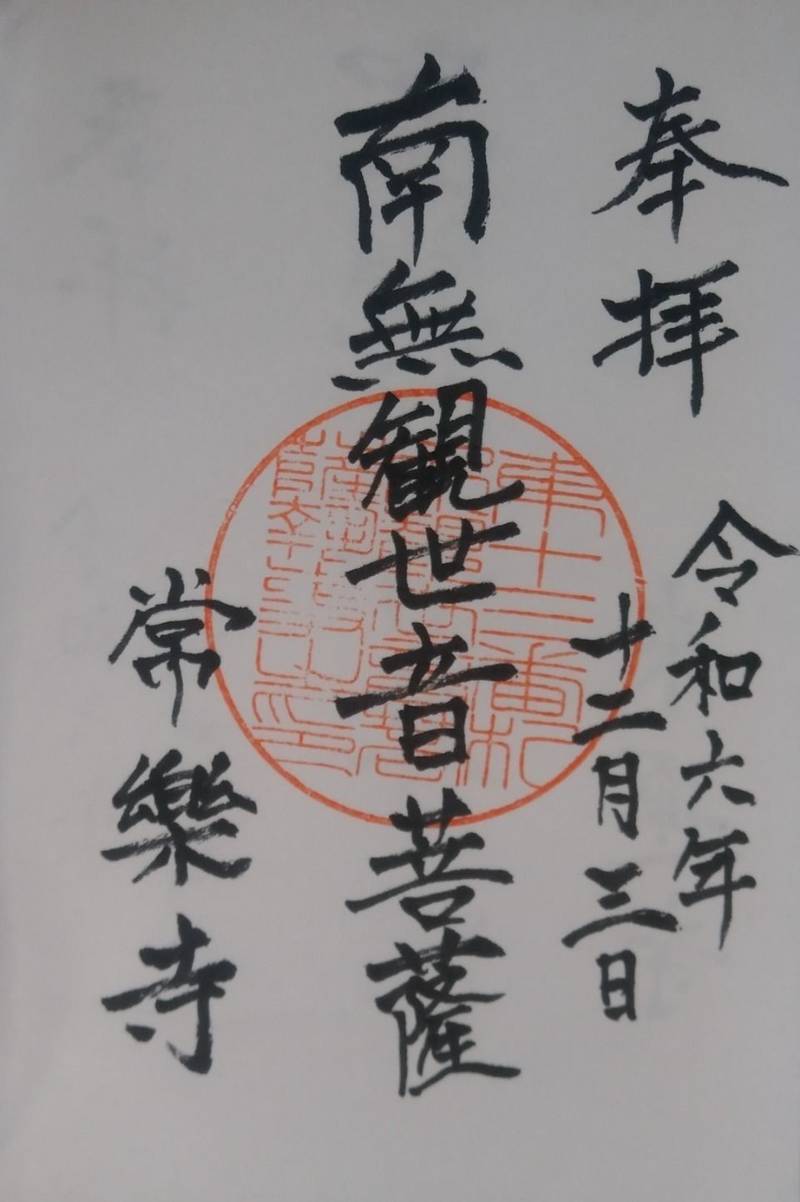 奉拝
令和六年
十二月三日
南無観世音菩薩
常樂寺